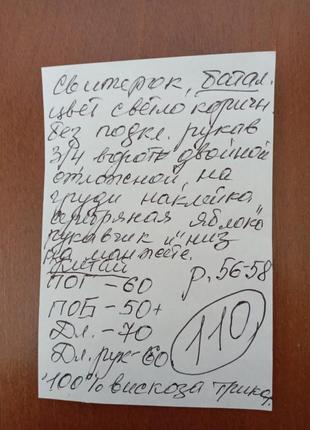 Свитерок, батал.
цвет светло коричн.
без подкл. рукав
3/4 ворот двойной
отложной, на
груди наклейка
"яблоко"
рукавчик и низ
на манжете.
Китай р. 56-58
ПОГ - 60
ПОБ - 50+
Дл. - 70 110
Дл. рук - 60
100% вискоза трикот.